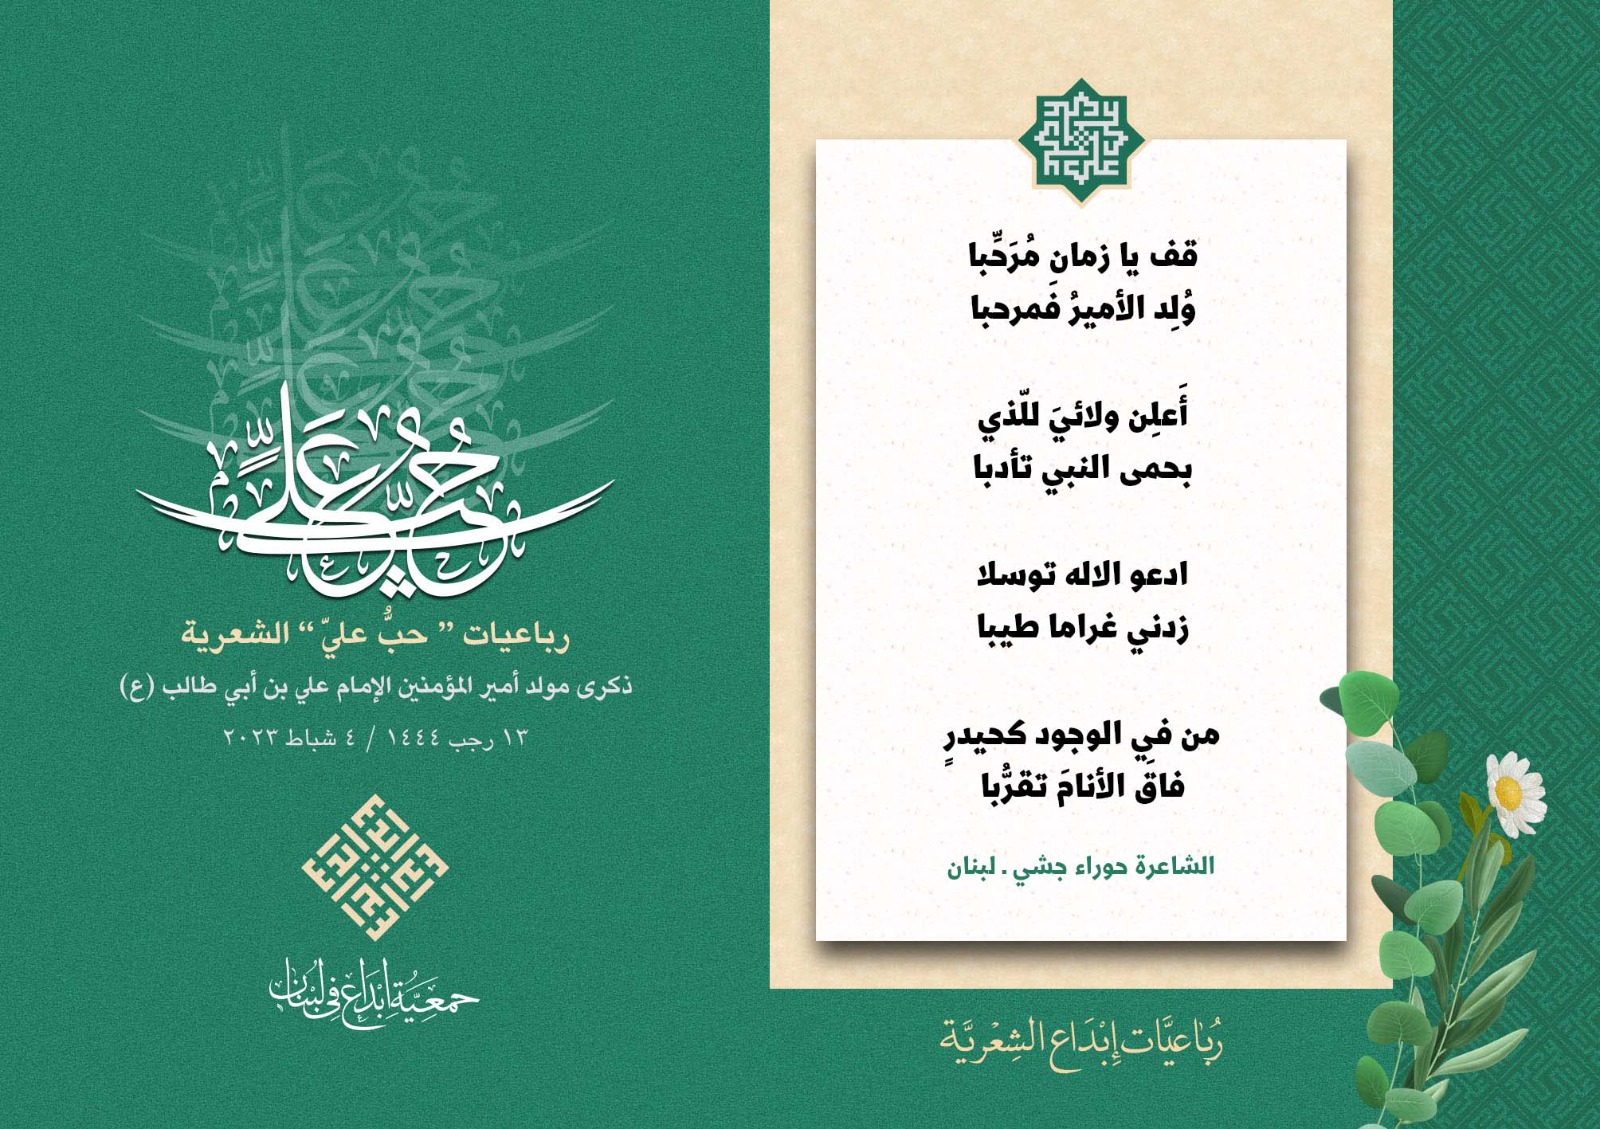 قف يا زمانِ مُرَحِّبا
وُلِد الأميرُ فَمرحبا
أَعلِن ولائيَ للّذي
بحمى النبي تأدبا
ادعو الاله توسلا
زدني غراما طيبا
من في الوجود كحيدرٍ
فاقَ الأنامَ تقرُّبا
الشاعرة حوراء جشي . لبنان
رُبَاعيَّات إِبْدَاع الشِعْريَّة
حُبُّ عَلِيٍّ
رباعيات ” حبُّ عليّ “ الشعرية
ذكرى مولد أمير المؤمنين الإمام علي بن أبي طالب (ع)
١٣ رجب ١٤٤٤ / ٤ شباط ٢٠٢٣
جمعيَّة إبْدَاع في لبْنان